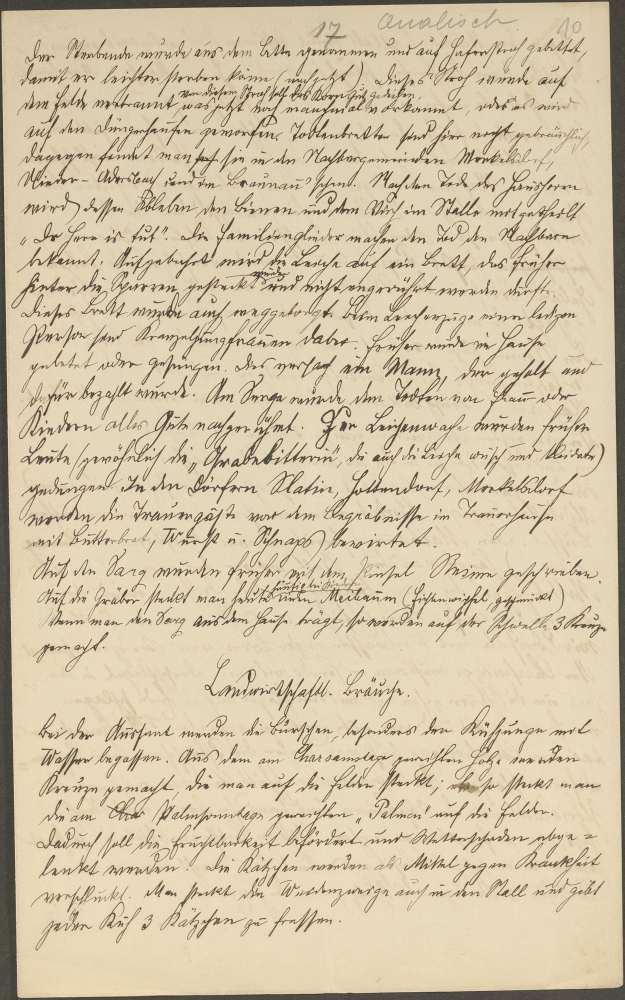 17 analisch 10
Der Sterbende wurde aus dem Bette genommen und auf Haferstroh gebettet,
damit er leichter sterben könne (noch jetzt). Dieses Stroh wurde auf
von diesem Stroh soll das Korn gut gedeihen
dem Felde verbrannt, was jetzt noch manchmal vorkommt, oder es wird
auf den Düngerhaufen geworfen. Todtenbretter sind hier nicht gebräuchlich,
dagegen findet man sie in den Nachbargemeinden Merkelsdorf,
Nieder-Adersbach und im Braunau'schen. Nach dem Tode des Hausherrn
wird dessen Ableben den Bienen und dem Vieh im Stalle mitgetheilt
"Dr Herr is tut". Die Familienglieder machen den Tod den Nachbarn
bekannt. Aufgebahrt wird die Leiche auf ein Brett, das früher
hinter die Sparren gesteckt wurde und nicht angerührt werden durfte.
Dieses Brett wurde auch weggetragen. Beim Leichenzuge einer ledigen
Person sind Kranzeljungfrauen dabei. Früher wurde im Hause
gebetet oder gesungen. Das versah ein Mann, der geholt und
dafür bezahlt wurde. Am Sarge wurde dem Todten von Frau oder
Kindern alles Gute nachgerühmt. Zur Leichenwache wurden früher
Leute (gewöhnlich die "Grabebitterin", die auch die Leiche wusch und kleidete)
gedungen. In den Dörfern Slatin, Hottendorf, Merkelsdorf
werden die Trauergäste vor dem Begräbnisse im Trauerhause
mit Butterbrot, Wurst u. Schnaps bewirtet.
Auf den Sarg wurden früher mit dem Pinsel Reime geschrieben.
Auf die Gräber steckt man heute einen Maibaum (Fichtenwipfel geschmückt)
Wenn man den Sarg aus dem Hause trägt, so werden auf der Schwelle 3 Kreuze
gemacht.
Landwirtschaftl. Bräuche.
Bei der Aussaat werden die Burschen, besonders der Kühjunge mit
Wasser begossen. Aus dem am Charsamstage geweihten Holze werden
Kreuze gemacht, die man auf die Felder steckt; so steckt man
die am Palmsonntage geweihten "Palmen" auf die Felder.
Dadurch soll die Fruchtbarkeit befördert und Wetterschaden abge=
lenkt werden. Die Kätzchen werden als Mittel gegen Krankheit
verschluckt. Man steckt die Weidenzweige auch in den Stall und gibt
jeder Kuh 3 Kätzchen zu fressen.